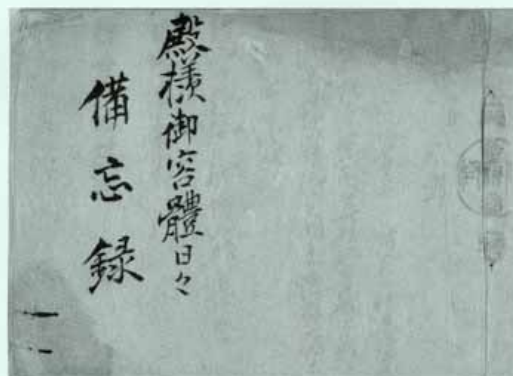 殿様御容體日々
備忘録